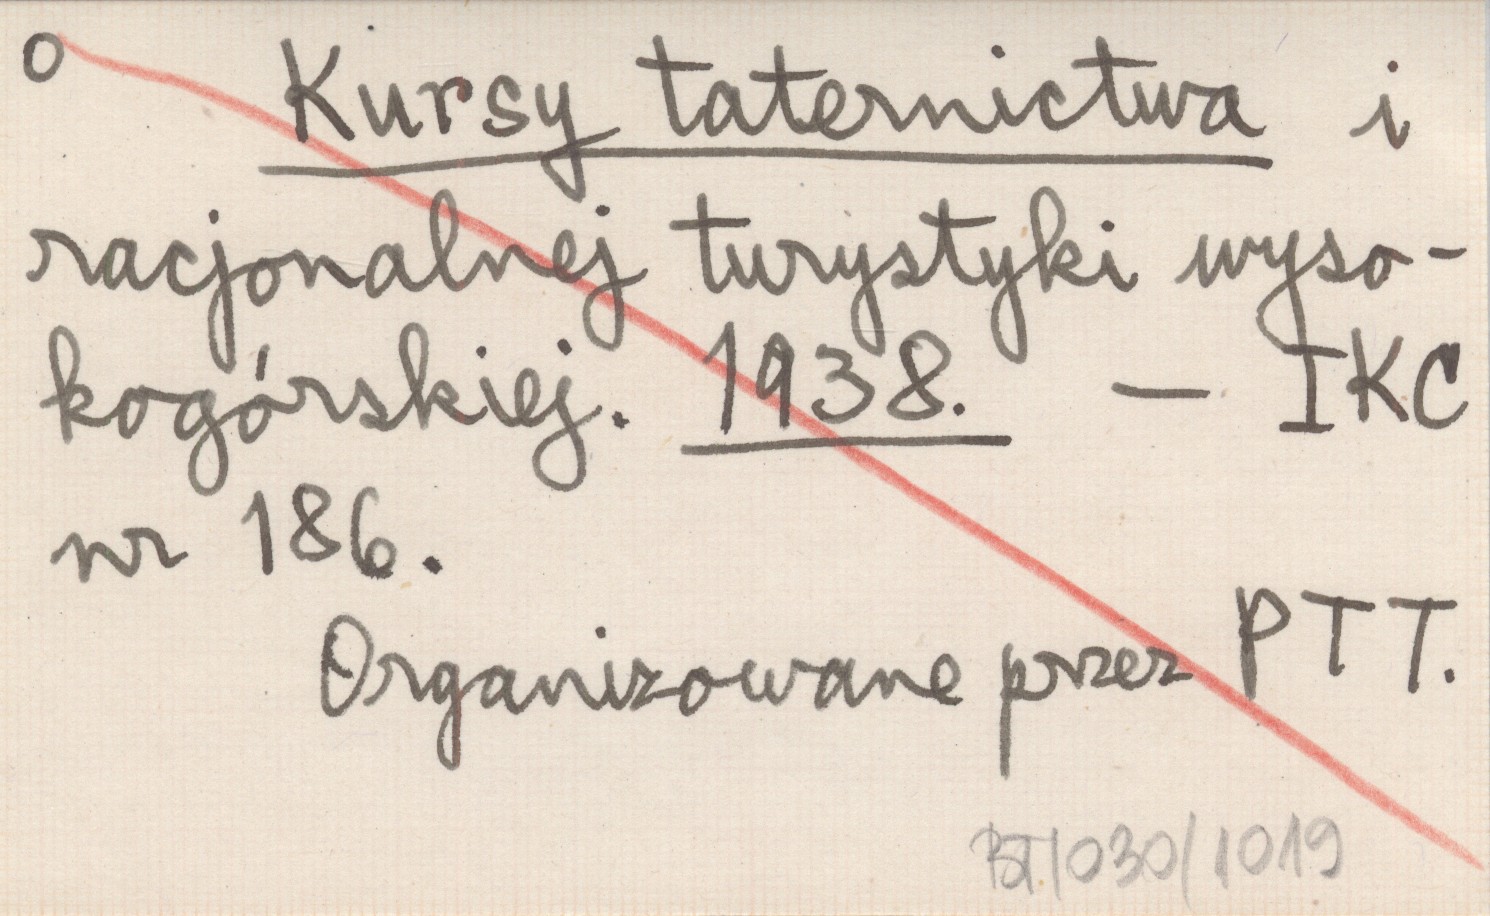 o Kursy taternictwa i
racjonalnej turystyki wyso-
kogórskiej. 1938. — IKC
nr 186.
Organizowane przez PTT.
BT/030/1019